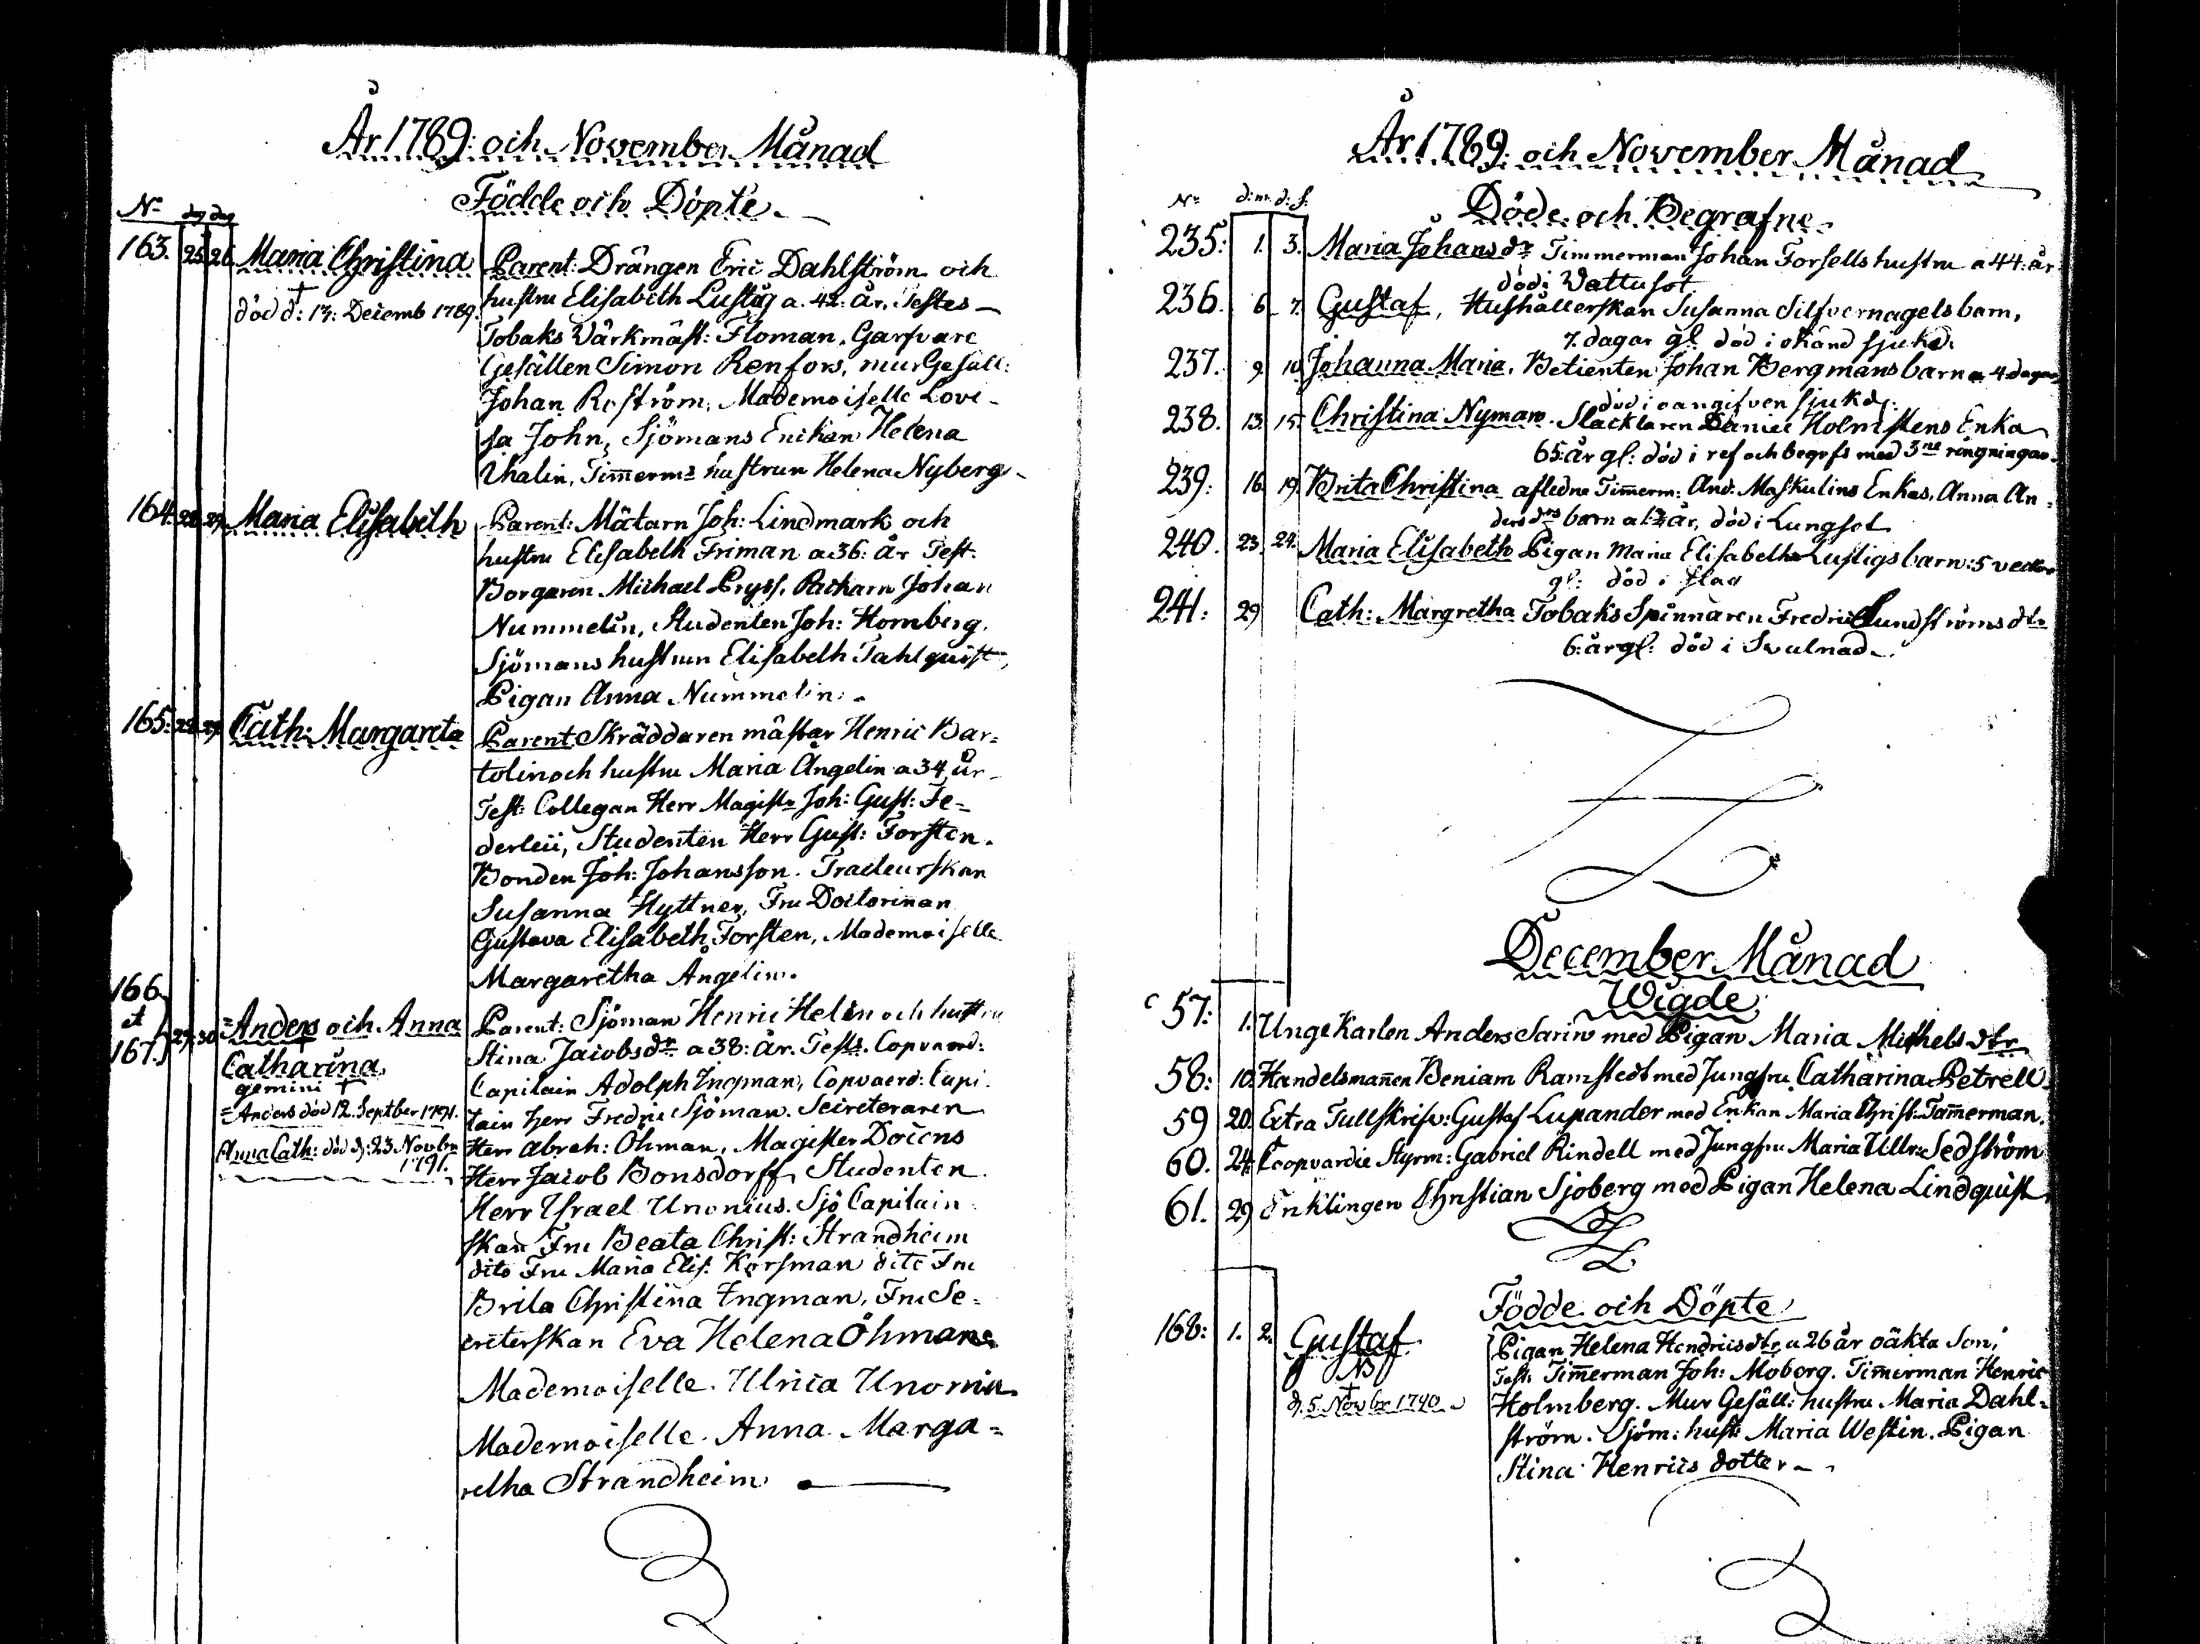 År 1789: och November Månad
Födde och Döpte
No dag dag
163. 25 26 Maria Christina
död d: 13: Decemb 1789.
Parent: Drången Eric Dahlström och
hustru Elisabeth Lustig a. 42: år. Testes
Tobaks Värkmäst: Floman, Garfvare
Gesällen Simon Renfors, mur Gesäll:
Johan Roström, Mademoiselle Lovi-
sa John, Sjömans Enckan Helena
Thalin, Timmerms hustrun Helena Nyberg
164. 28 29 Maria Elisabeth
Parent: Mätarn Joh: Lindmark och
hustru Elisabeth Friman a 36: år Test:
Borgaren Michael Pryss, Packarn Johan
Nummelin, Studenten Joh: Hornberg,
Sjömans hustrun Elisabeth Tahlquist,
Pigan Anna Nummelin.
165: 28 29 Cath: Margareta
Parent Skräddaren mästar Henric Bar=
tolin och hustru Maria Ångelin a 34 år
Test: Collegan Herr Magistr Joh: Gust: Fe=
derleii, Studenten Herr Gust: Forsten.
Bonden Joh: Johansson. Tracteurskan
Susanna Hyttner, Fru Doctorinan
Gustava Elisabeth Forsten, Mademoiselle
Margaretha Ångelin.
166
et
167. 29 30 =Anders och Anna
Catharina,
gemini
= Anders död 12. Septber 1791.
Anna Cath: död d: 23 Novbr
1791.
Parent: Sjöman Henric Helin och hustru
Stina Jacobsdr a 38: år. Tests. Copvaerd:
Capitain Adolph Ingman, Copvaerd: Capi-
tain Herr Fredric Sjöman. Secreteraren
Herr Abrah: Öhman, Magister Docens
Herr Jacob Bonsdorff, Studenten
Herr Israel Unonius. Sjö Capitain
skan Fru Beata Christ: Strandheim
dito Fru Maria Elis: Korsman dito Fru
Brita Christina Ingman, Fru Se=
creterskan Eva Helena Öhman
Mademoiselle Ulrica Unonia
Mademoiselle Anna Marga=
retha Strandheim
År 1789: och November Månad
Döde och Begrafne
No d:m: d:f:
235: 1. 3. Maria Johansdr Timmerman Johan Forsells hustru a 44: år
död i Vattusot
236. 6 7. Gustaf, Hushållerskan Susanna Silfvernagels barn,
7. dagar gl: död i okänd sjukd:
237. 9 10 Johanna Maria, Betienten Johan Bergmans barn a 4 dagar
död i oangifven sjukd:
238. 13. 15. Christina Nyman. Slacktaren Daniel Holmstens Enka
65: år gl: död i ref och begrfs med 3ne ringningar
239: 16. 19. Brita Christina afledne Timmerm: And: Maskulins Enkas, Anna An=
dersdrs barn a 1 år, död i Lungsot
240. 23. 24. Maria Elisabeth Pigan Maria Elisabeth Lustigs barn: 5 veckor
gl: död i slag
241: 29 Cath: Margretha Tobaks Spinnaren Fredric Lundströms dtr
6: år gl: död i Svulnad
December Månad
Wigde
57: 1. Unge Karlen Anders Sarin med Pigan Maria Michelsdtr
58: 10. Handelsmannen Beniam Ramstedt med Jungfru Catharina Petrell
59 20. Extra Tullskrifv: Gustaf Lupander med Enkan Maria Christ: Tammerman.
60. 24. Coopvardie Styrm: Gabriel Rindell med Jungfru Maria Ullr: Sedström
61. 29 Enklingen Christian Sjöberg med Pigan Helena Lindquist
Födde och Döpte
168: 1. 2. Gustaf
d. 5 Novbr 1790
Pigan Helena Hendricsdtr a 26 år oäkta Son,
Test: Timmerman Joh: Moberg. Timmerman Henric
Holmberg. Mur Gesäll: hustru Maria Dahl-
ström. Sjöm: hust: Maria Westin. Pigan
Stina Henrics dotter